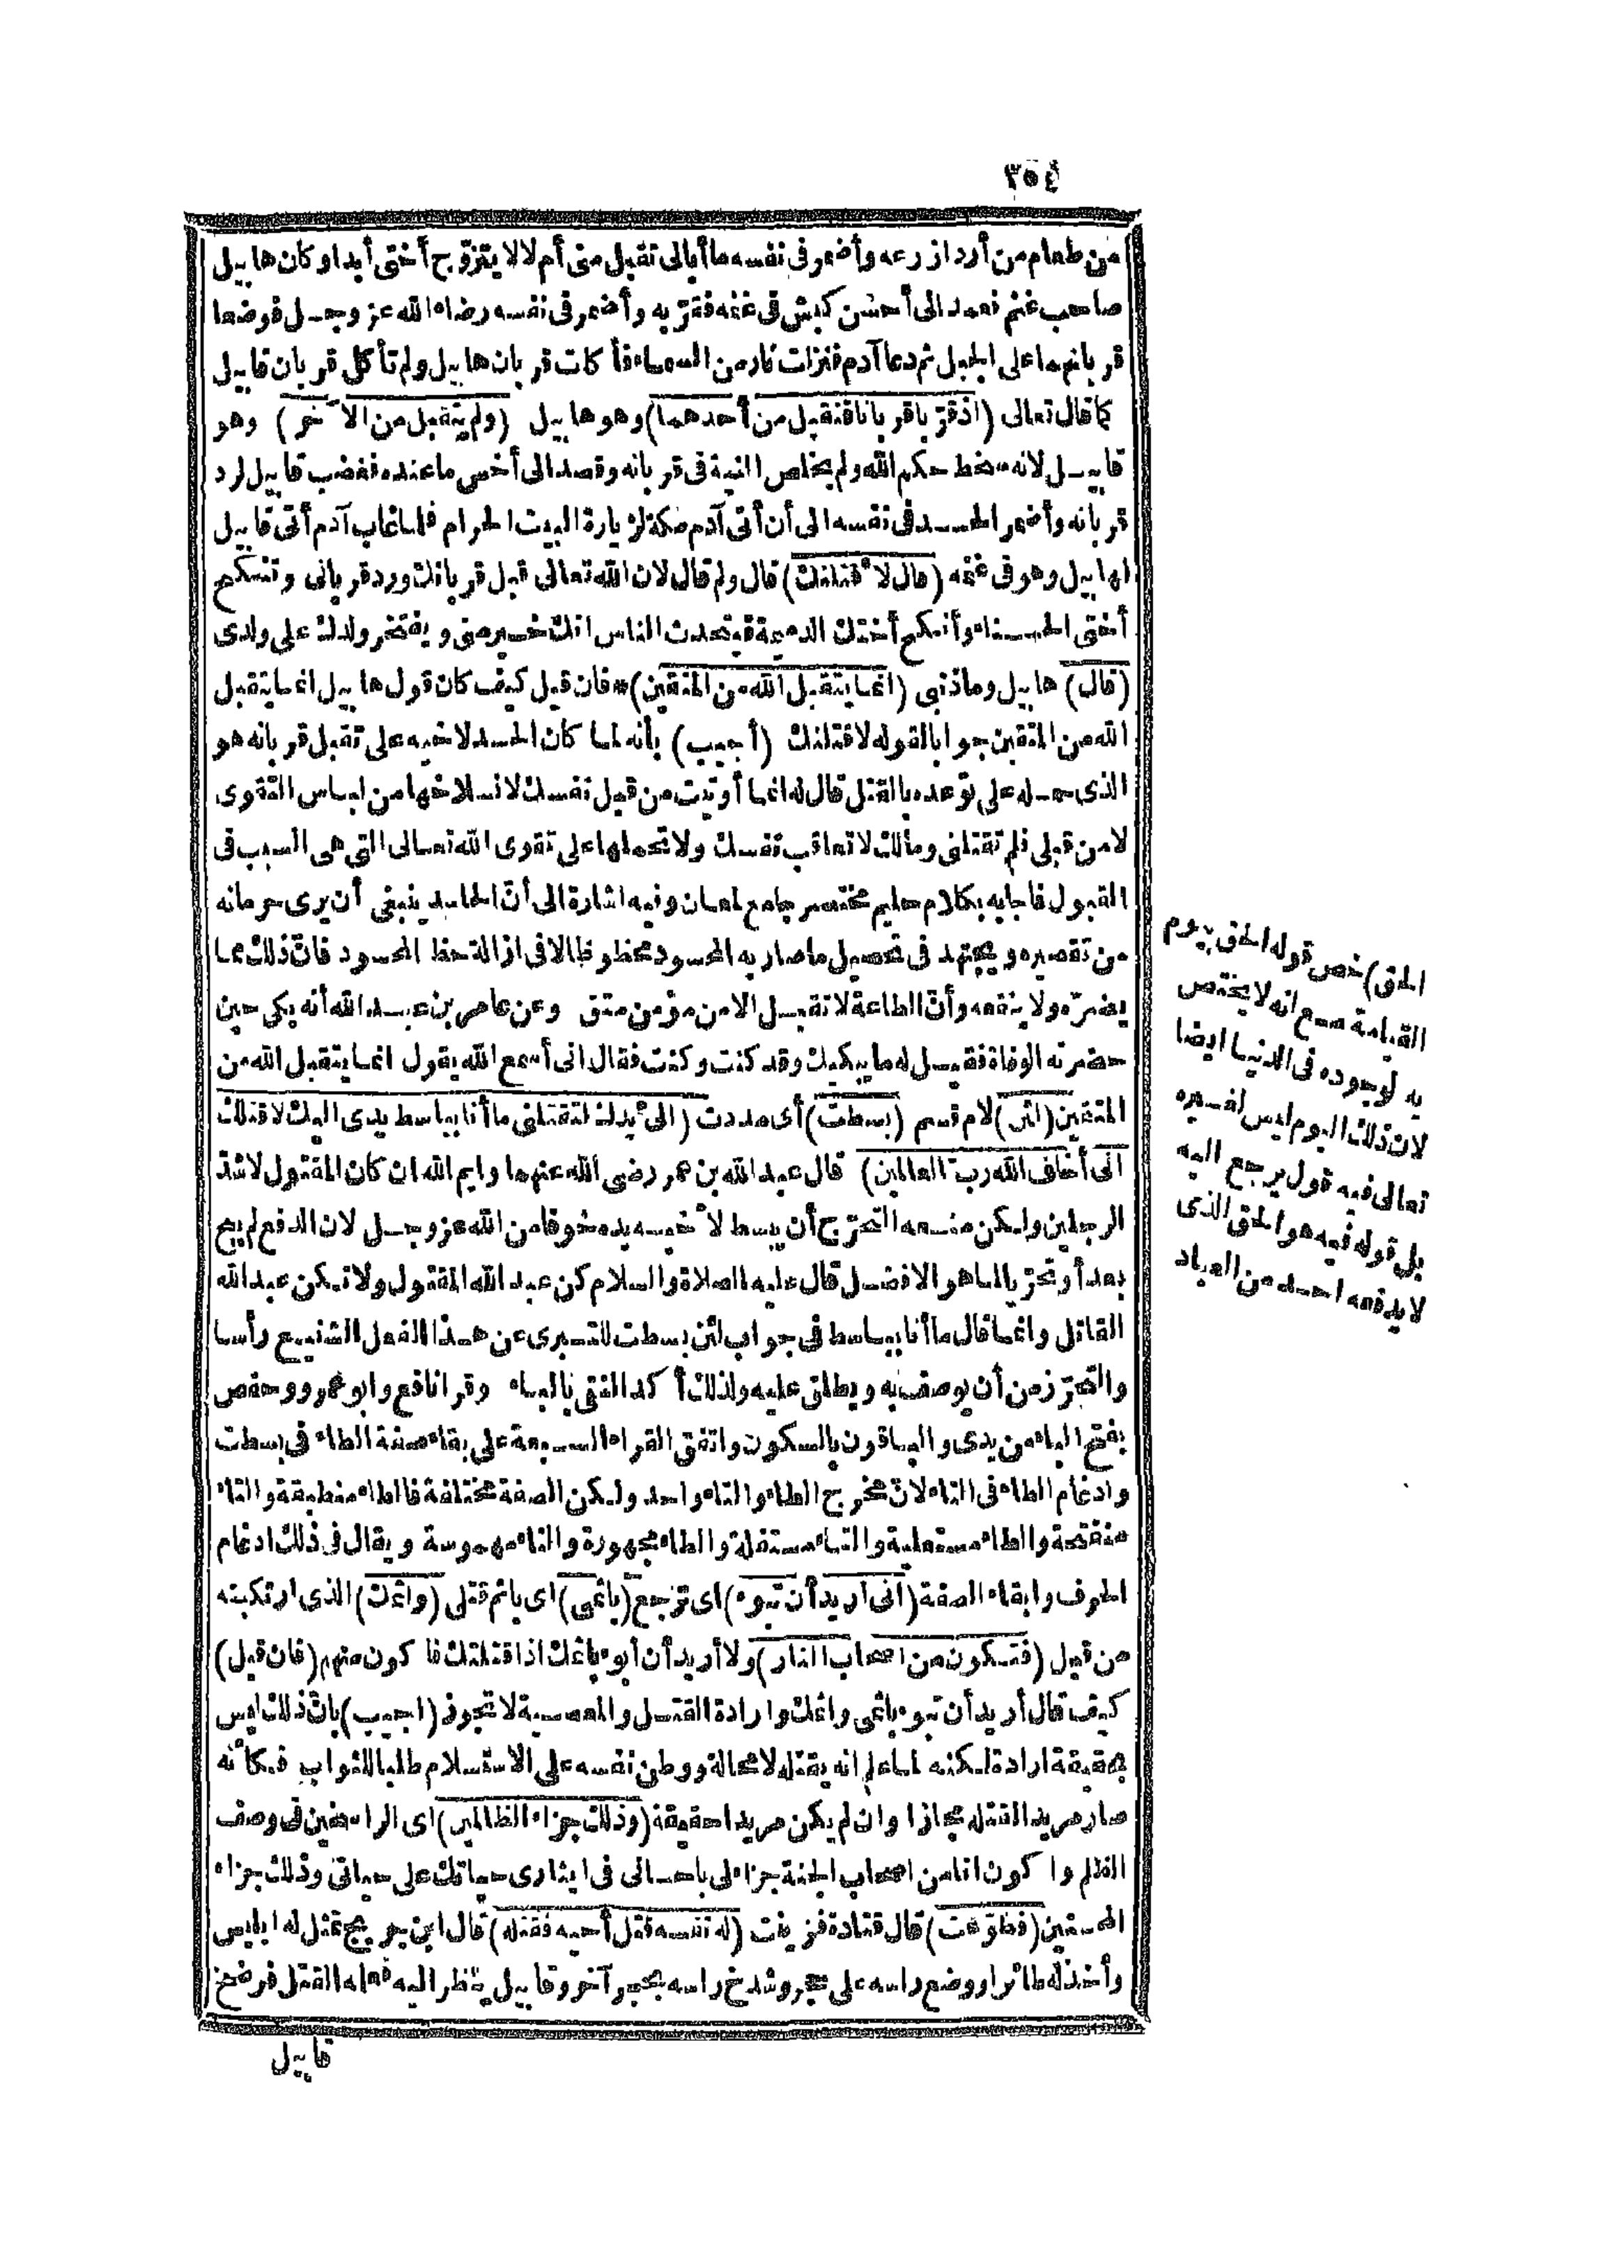 ٣٥٤
من طعام من أرداز رعه وأضمر في نفسه ما أبالى تقبل منى أم لا لا يتزوّج أختى أبدا وكان هابيل
صاحب غنم فعمد الى أحسن كبش في غنمه فقرّبه وأضمر في نفسه رضاه الله عز وجل فوضعا
قربانهما على الجبل ثم دعا آدم فنزلت نار من السماء فأكلت قربان هابيل ولم تأكل قربان قابيل
كما قال تعالى (اذ قرّبا قربانا فتقبل من أحدهما) وهو هابيل (ولم يتقبل من الآخر) وهو
قابيل لانه سخط حكم الله ولم يخلص النية في قربانه وقصد الى أخس ما عنده فغضب قابيل لرد
قربانه وأضمر الحسد في نفسه الى أن أتى آدم مكة لزيارة البيت الحرام فلما غاب آدم أتى قابيل
لهابيل وهو في غنمه (قال لأقتلنك) قال ولم قال لان الله تعالى قبل قربانك ورد قربانى وتنكح
أختى الحسناء وأنكح أختك الدميمة فيتحدث الناس انك خير منى ويفتخر ولدك على ولدى
(قال) هابيل وما ذنبى (انما يتقبل الله من المتقين)* فان قيل كيف كان قول هابيل انما يتقبل
الله من المتقين جوابا لقوله لاقتلنك (أجيب) بأنه لما كان الحسد لاخيه على تقبل قربانه هو
الذى حمله على توعده بالقتل قال له انما أوتيت من قبل نفسك لانسلاخها من لباس التقوى
لا من قبلى فلم تقتلنى ومالك لا تعاقب نفسك ولا تحملها على تقوى الله تعالى التى هى السبب فى
القبول فاجابه بكلام حليم مختصر جامع لمعان وفيه اشارة الى أنّ الحاسد ينبغى أن يرى حرمانه
من تقصيره ويجتهد فى تحصيل ما صار به المحسود محظوظا لا فى ازالة حظ المحسود فانّ ذلك مما
يضرّه ولا ينفعه وأنّ الطاعة لا تقبل الا من مؤمن متق وعن عامر بن عبد الله أنه بكى حين
حضرته الوفاة فقيل له ما يبكيك وقد كنت وكنت فقال انى أسمع الله يقول انما يتقبل الله من
المتقين (لئن) لام قسم (بسطت) أى مددت (الىّ يدك لتقتلنى ما أنا بباسط يدى اليك لاقتلك
انى أخاف الله رب العالمين) قال عبد الله بن عمر رضى الله عنهما وايم الله ان كان المقتول لاشدّ
الرجلين ولكن منعه التحرّج أن يبسط لأخيه يده خوفا من الله عز وجل لان الدفع لم يبح
بعد أو تحرّيا لما هو الافضل قال عليه الصلاة والسلام كن عبد الله المقتول ولا تكن عبد الله
القاتل وانما قال ما أنا بباسط فى جواب لئن بسطت للتبرى عن هذا الفعل الشنيع رأسا
والتحرّز من أن يوصف به ويطلق عليه ولذلك أكد النفى بالباء وقرا نافع وابو عمرو وحفص
بفتح الياء من يدى والباقون بالسكون واتفق القراء السبعة على بقاء صفة الطاء فى بسطت
وادغام الطاء فى التاء لانّ مخرج الطاء والتاء واحد ولكن الصفة مختلفة فالطاء منطبقة والتاء
منفتحة والطاء مستعلية والتاء مستفلة والطاء مجهورة والتاء مهموسة ويقال فى ذلك ادغام
الحرف وابقاء الصفة (انى أريد أن تبوء) اى ترجع (باثمى) اى باثم قتلى (واثمك) الذى ارتكبته
من قبل (فتكون من اصحاب النار) ولا أريد أن أبوء باثمك اذا قتلتك فاكون منهم (فان قيل)
كيف قال أريد أن تبوء باثمى واثمك وارادة القتل والمعصية لا تجوز (اجيب) بانّ ذلك ليس
بحقيقة ارادة لكنه لما علم انه يقتله لا محالة ووطن نفسه على الاستسلام طلبا للثواب فكأنه
صار مريدا لقتله مجازا وان لم يكن مريدا حقيقة (وذلك جزاء الظالمين) اى الراسخين فى وصف
الظلم واكون انا من اصحاب الجنة جزاء لى باحسانى فى ايثارى حياتك على حياتى وذلك جزاء
المحسنين (فطوّعت) قال قتادة فزينت (له نفسه قتل أخيه فقتله) قال ابن جريج تمثل له ابليس
وأخذ له طائرا ووضع راسه على حجر وشدخ راسه بحجر آخر وقابيل ينظر اليه فعلمه القتل فرضخ
قابيل
الحق) خص قوله الحق بيوم
القيامة مع انه لا يختص
به لوجوده فى الدنيا ايضا
لان ذلك اليوم ليس لغيره
تعالى فيه قول يرجع اليه
بل قوله فيه هو الحق الذى
لا يدفعه احد من العباد